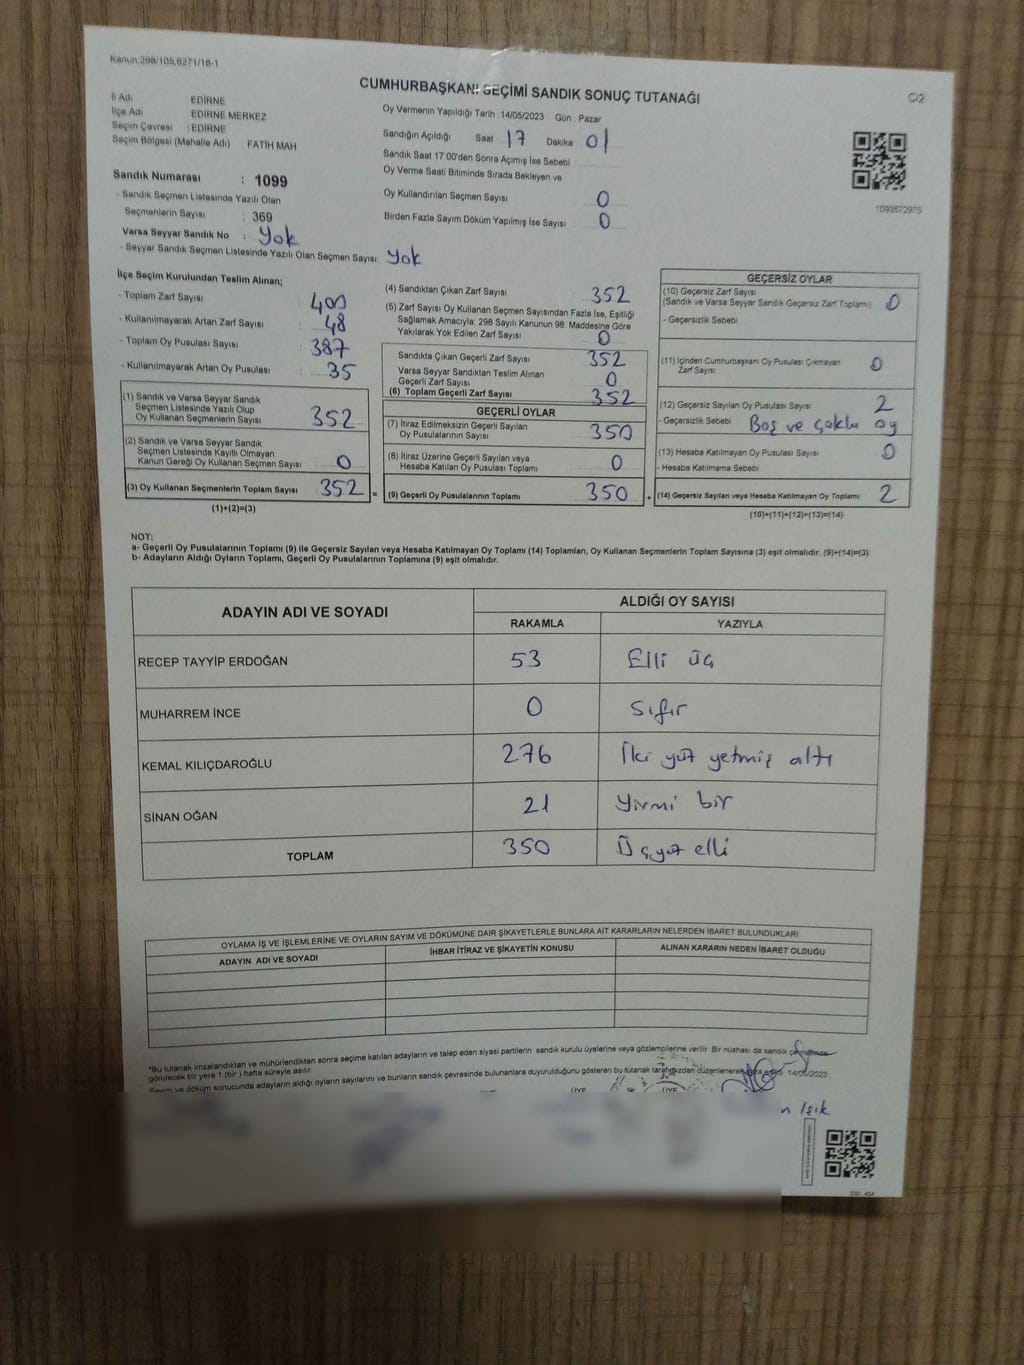 Kanun.298/105,6271/18-1
C/2
CUMHURBAŞKANI SEÇİMİ SANDIK SONUÇ TUTANAĞI
İl Adı EDİRNE
İlçe Adı EDİRNE MERKEZ
Seçim Çevresi : EDİRNE
Seçim Bölgesi (Mahalle Adı) FATİH MAH
Sandık Numarası : 1099
- Sandık Seçmen Listesinde Yazılı Olan
Seçmenlerin Sayısı : 369
Varsa Seyyar Sandık No : Yok
- Seyyar Sandık Seçmen Listesinde Yazılı Olan Seçmen Sayısı: Yok
Oy Vermenin Yapıldığı Tarih : 14/05/2023 Gün : Pazar
Sandığın Açıldığı Saat 17 Dakika 01
Sandık Saat 17.00'den Sonra Açımış İse Sebebi
Oy Verme Saati Bitiminde Sırada Bekleyen ve
Oy Kullandırılan Seçmen Sayısı 0
Birden Fazla Sayım Döküm Yapılmış İse Sayısı 0
1093572975
İlçe Seçim Kurulundan Teslim Alınan;
- Toplam Zarf Sayısı : 400
- Kullanılmayarak Artan Zarf Sayısı : 48
- Toplam Oy Pusulası Sayısı : 387
- Kullanılmayarak Artan Oy Pusulası : 35
(1) Sandık ve Varsa Seyyar Sandık
Seçmen Listesinde Yazılı Olup
Oy Kullanan Seçmenlerin Sayısı : 352
(2) Sandık ve Varsa Seyyar Sandık
Seçmen Listesinde Kayıtlı Olmayan
Kanun Gereği Oy Kullanan Seçmen Sayısı : 0
(3) Oy Kullanan Seçmenlerin Toplam Sayısı 352 =
(1)+(2)=(3)
(4) Sandıktan Çıkan Zarf Sayısı 352
(5) Zarf Sayısı Oy Kullanan Seçmen Sayısından Fazla İse, Eşitliği
Sağlamak Amacıyla; 298 Sayılı Kanunun 98. Maddesine Göre
Yakılarak Yok Edilen Zarf Sayısı 0
Sandıkta Çıkan Geçerli Zarf Sayısı 352
Varsa Seyyar Sandıktan Teslim Alınan
Geçerli Zarf Sayısı 0
(6) Toplam Geçerli Zarf Sayısı 352
GEÇERLİ OYLAR
(7) İtiraz Edilmeksizin Geçerli Sayılan
Oy Pusulalarının Sayısı 350
(8) İtiraz Üzerine Geçerli Sayılan veya
Hesaba Katılan Oy Pusulası Toplamı 0
(9) Geçerli Oy Pusulalarının Toplamı 350 +
GEÇERSİZ OYLAR
(10) Geçersiz Zarf Sayısı
(Sandık ve Varsa Seyyar Sandık Geçersiz Zarf Toplamı) 0
- Geçersizlik Sebebi
(11) İçinden Cumhurbaşkanı Oy Pusulası Çıkmayan
Zarf Sayısı 0
(12) Geçersiz Sayılan Oy Pusulası Sayısı 2
- Geçersizlik Sebebi Boş ve çoklu oy
(13) Hesaba Katılmayan Oy Pusulası Sayısı 0
- Hesaba Katılmama Sebebi
(14) Geçersiz Sayılan veya Hesaba Katılmayan Oy Toplamı 2
(10)+(11)+(12)+(13)=(14)
NOT:
a- Geçerli Oy Pusulalarının Toplamı (9) ile Geçersiz Sayılan veya Hesaba Katılmayan Oy Toplamı (14) Toplamları, Oy Kullanan Seçmenlerin Toplam Sayısına (3) eşit olmalıdır. (9)+(14)=(3)
b- Adayların Aldığı Oyların Toplamı, Geçerli Oy Pusulalarının Toplamına (9) eşit olmalıdır.
ADAYIN ADI VE SOYADI ALDIĞI OY SAYISI
RAKAMLA YAZIYLA
RECEP TAYYİP ERDOĞAN 53 Elli üç
MUHARREM İNCE 0 Sıfır
KEMAL KILIÇDAROĞLU 276 İki yüz yetmiş altı
SİNAN OĞAN 21 Yirmi bir
TOPLAM 350 Üçyüz elli
OYLAMA İŞ VE İŞLEMLERİNE VE OYLARIN SAYIM VE DÖKÜMÜNE DAİR ŞİKAYETLERLE BUNLARA AİT KARARLARIN NELERDEN İBARET BULUNDUKLARI
ADAYIN ADI VE SOYADI İHBAR İTİRAZ VE ŞİKAYETİN KONUSU ALINAN KARARIN NEDEN İBARET OLDUĞU
*Bu tutanak imzalandıktan ve mühürlendikten sonra seçime katılan adayların ve talep eden siyasi partilerin sandık kurulu üyelerine veya gözlemcilerine verilir. Bir nüshası da sandık çevresinde
görülecek bir yere 1 (bir) hafta süreyle asılır.
Sayım ve döküm sonucunda adayların aldığı oyların sayılarını ve bunların sandık çevresinde bulunanlara duyurulduğunu gösteren bu tutanak tarafımızdan düzenlenerek 14/05/2023
ÜYE ÜYE
Işık